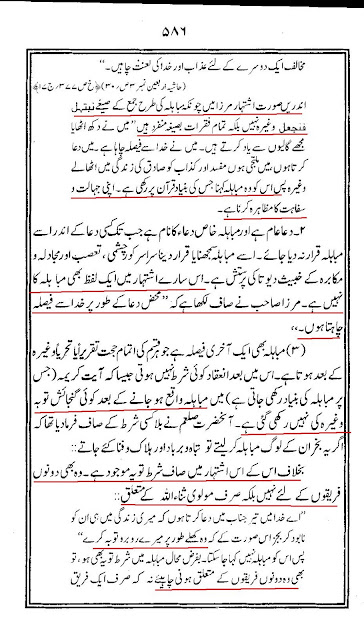 ۵۸۶
مخالف ایک دوسرے کے لئے عذاب اور خدا کی لعنت چاہیں۔"
(حاشیہ اربعین نمبر ۲ ص۳۰، خ ص ۳۷۷ ج ۱۷)
اندریں صورت اشتہار مرزا میں چونکہ مباہلہ کی طرح جمع کے صیغے نبتهل
فنجعل وغیرہ نہیں بلکہ تمام فقرات بصیغہ منفرد ہیں" میں نے دکھ اٹھایا
مجھے گالیوں سے یاد کرتے ہیں۔ میں نے خدا سے فیصلہ چاہا ہے میں دعا
کرتا ہوں، میں ملتجی ہوں مفسد اور کذاب کو صادق کی زندگی میں اٹھالے
وغیرہ پس اس کو وہ مباہلہ کہنا جس کی بنیاد قرآن پر رکھی ہے۔ اپنی جہالت و
سفاہت کا مظاہرہ کرنا ہے۔
۲۔ دعا عام ہے اور مباہلہ خاص دعا کا نام ہے جب تک کسی دعا کے اندر اسے
مباہلہ قرار نہ دیا جائے۔ اسے مباہلہ سمجھنا یا قرار دینا سراسر کور چشمی، تعصب اور مجادلہ و
مکابرہ کے خبیث دیوتا کی پرستش ہے۔ اس سارے اشتہار میں ایک لفظ بھی مباہلہ کا
نہیں ہے۔ مرزا صاحب نے صاف لکھا ہے کہ "محض دعا کے طور پر خدا سے فیصلہ
چاہتا ہوں۔"
(۳) مباہلہ بھی ایک آخری فیصلہ ہے جو قسم کی اتمام حجت تقریراً یا تحریراً وغیرہ
کے بعد ہوتا ہے۔ اس میں بعد انعقاد کوئی شرط نہیں ہوتی جیسا کہ آیت کریمہ (جس
پر مباہلہ کی بنیاد رکھی جاتی ہے) میں مباہلہ واقع ہو جانے کے بعد کوئی گنجائش توبہ
وغیرہ کی نہیں رکھی گئی ہے۔ آنحضرت صلعم نے بلا کسی شرط کے صاف فرمادیا تھا کہ
اگر یہ نجران کے لوگ مباہلہ کر لیتے تو تباہ و برباد اور ہلاک و فنا کئے جاتے::
بخلاف اس کے اس اشتہار میں صاف شرط توبہ موجود ہے۔ وہ بھی دونوں
فریقوں کے لئے نہیں بلکہ صرف مولوی ثناء اللہ کے متعلق::
"اے خدا میں تیری جناب میں دعا کرتا ہوں کہ میری زندگی میں ہی ان کو
نابود کر بجز اس صورت کے کہ وہ کھلے طور پر میرے روبرو توبہ کرے"
پس اس کو مباہلہ نہیں کہا جا سکتا۔ بفرض محال مباہلہ میں شرط توبہ بھی ہو، تو
بھی وہ دونوں فریقوں کے متعلق ہونی چاہیئے نہ کہ صرف ایک فریق